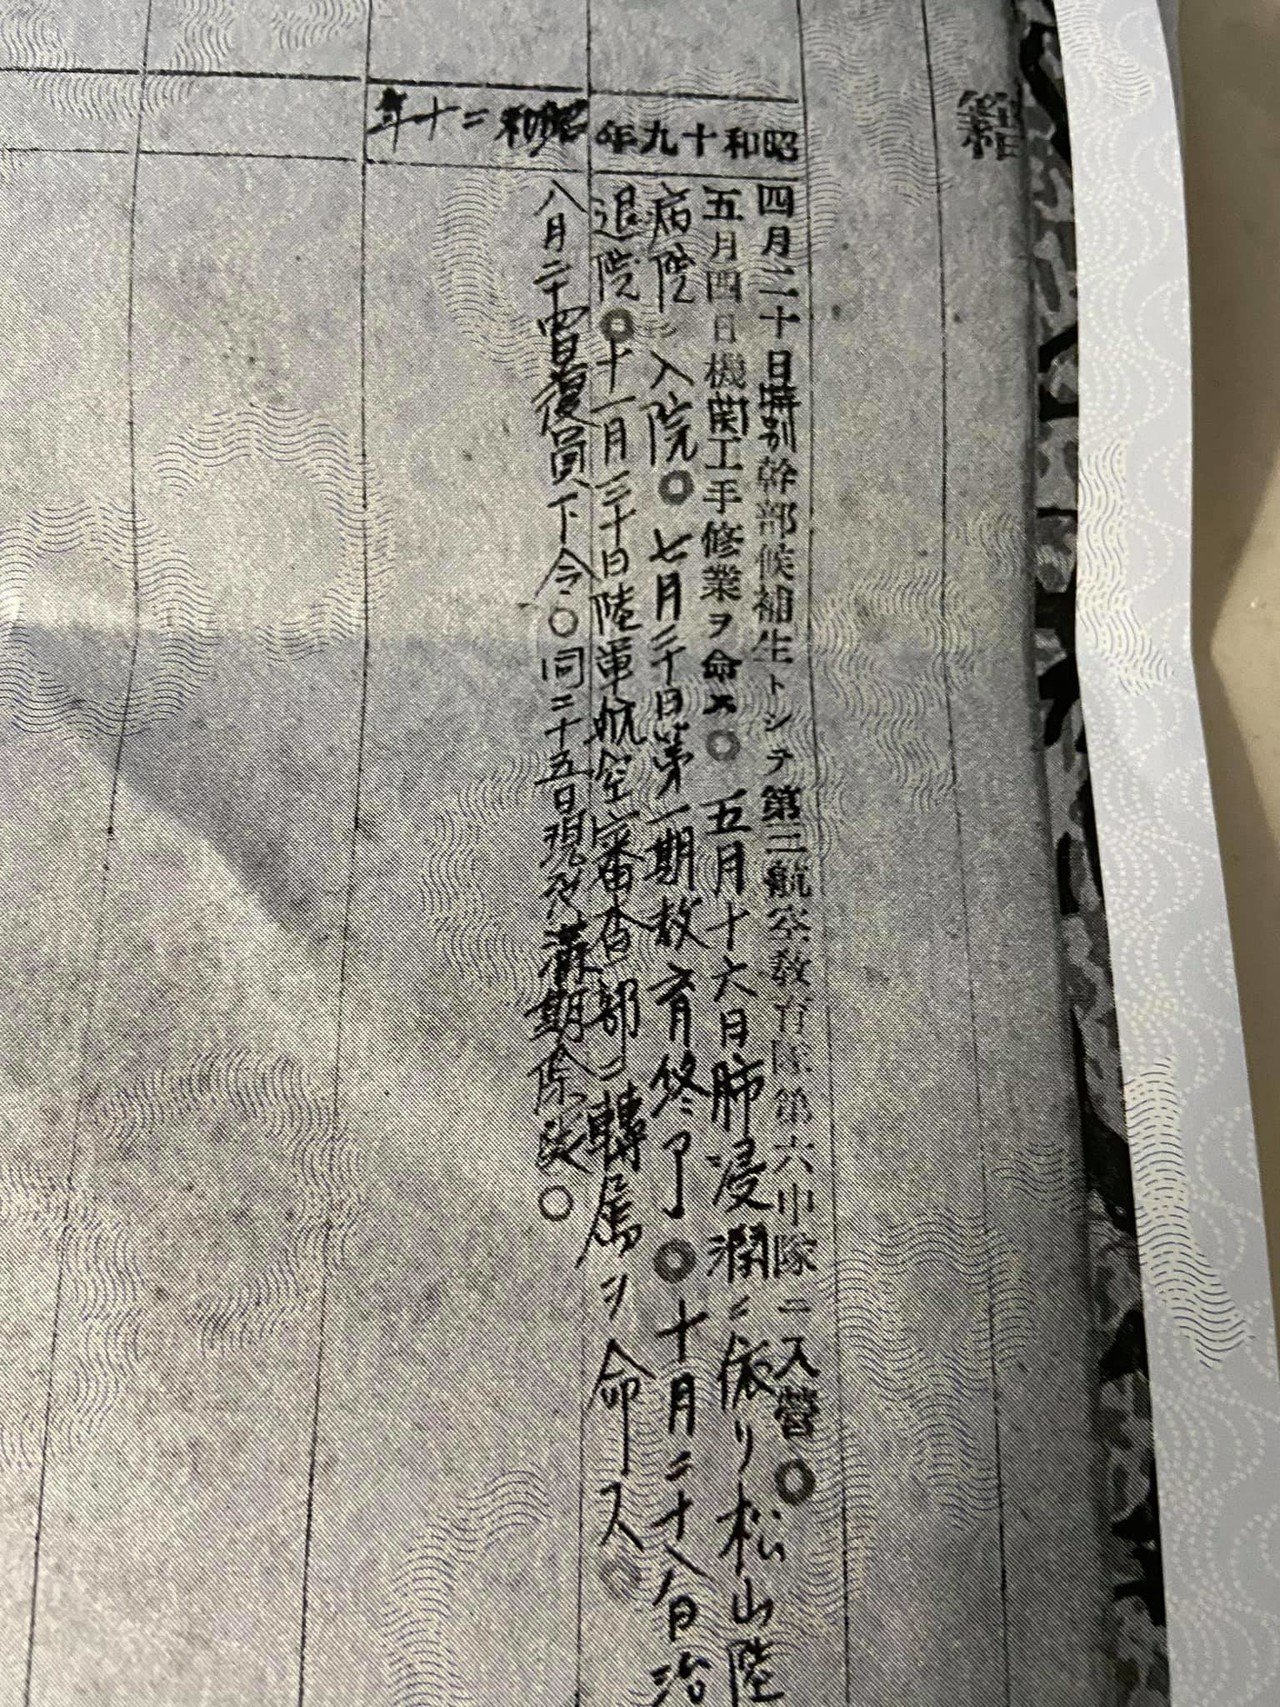 籍
昭和十九年
四月二十日特別幹部候補生トシテ第三航空教育隊第六中隊ニ入營〇
五月四日機関工手修業ヲ命ス〇 五月十六日肺浸潤ニ依リ松山陸
病院ニ入院〇七月三十日第一期教育終了〇十月二十八日治
退院〇十一月三十日陸軍航空審査部ニ轉属ヲ命ス
昭和二十年
八月二十 日復員下令〇同二十五日現役満期除隊〇